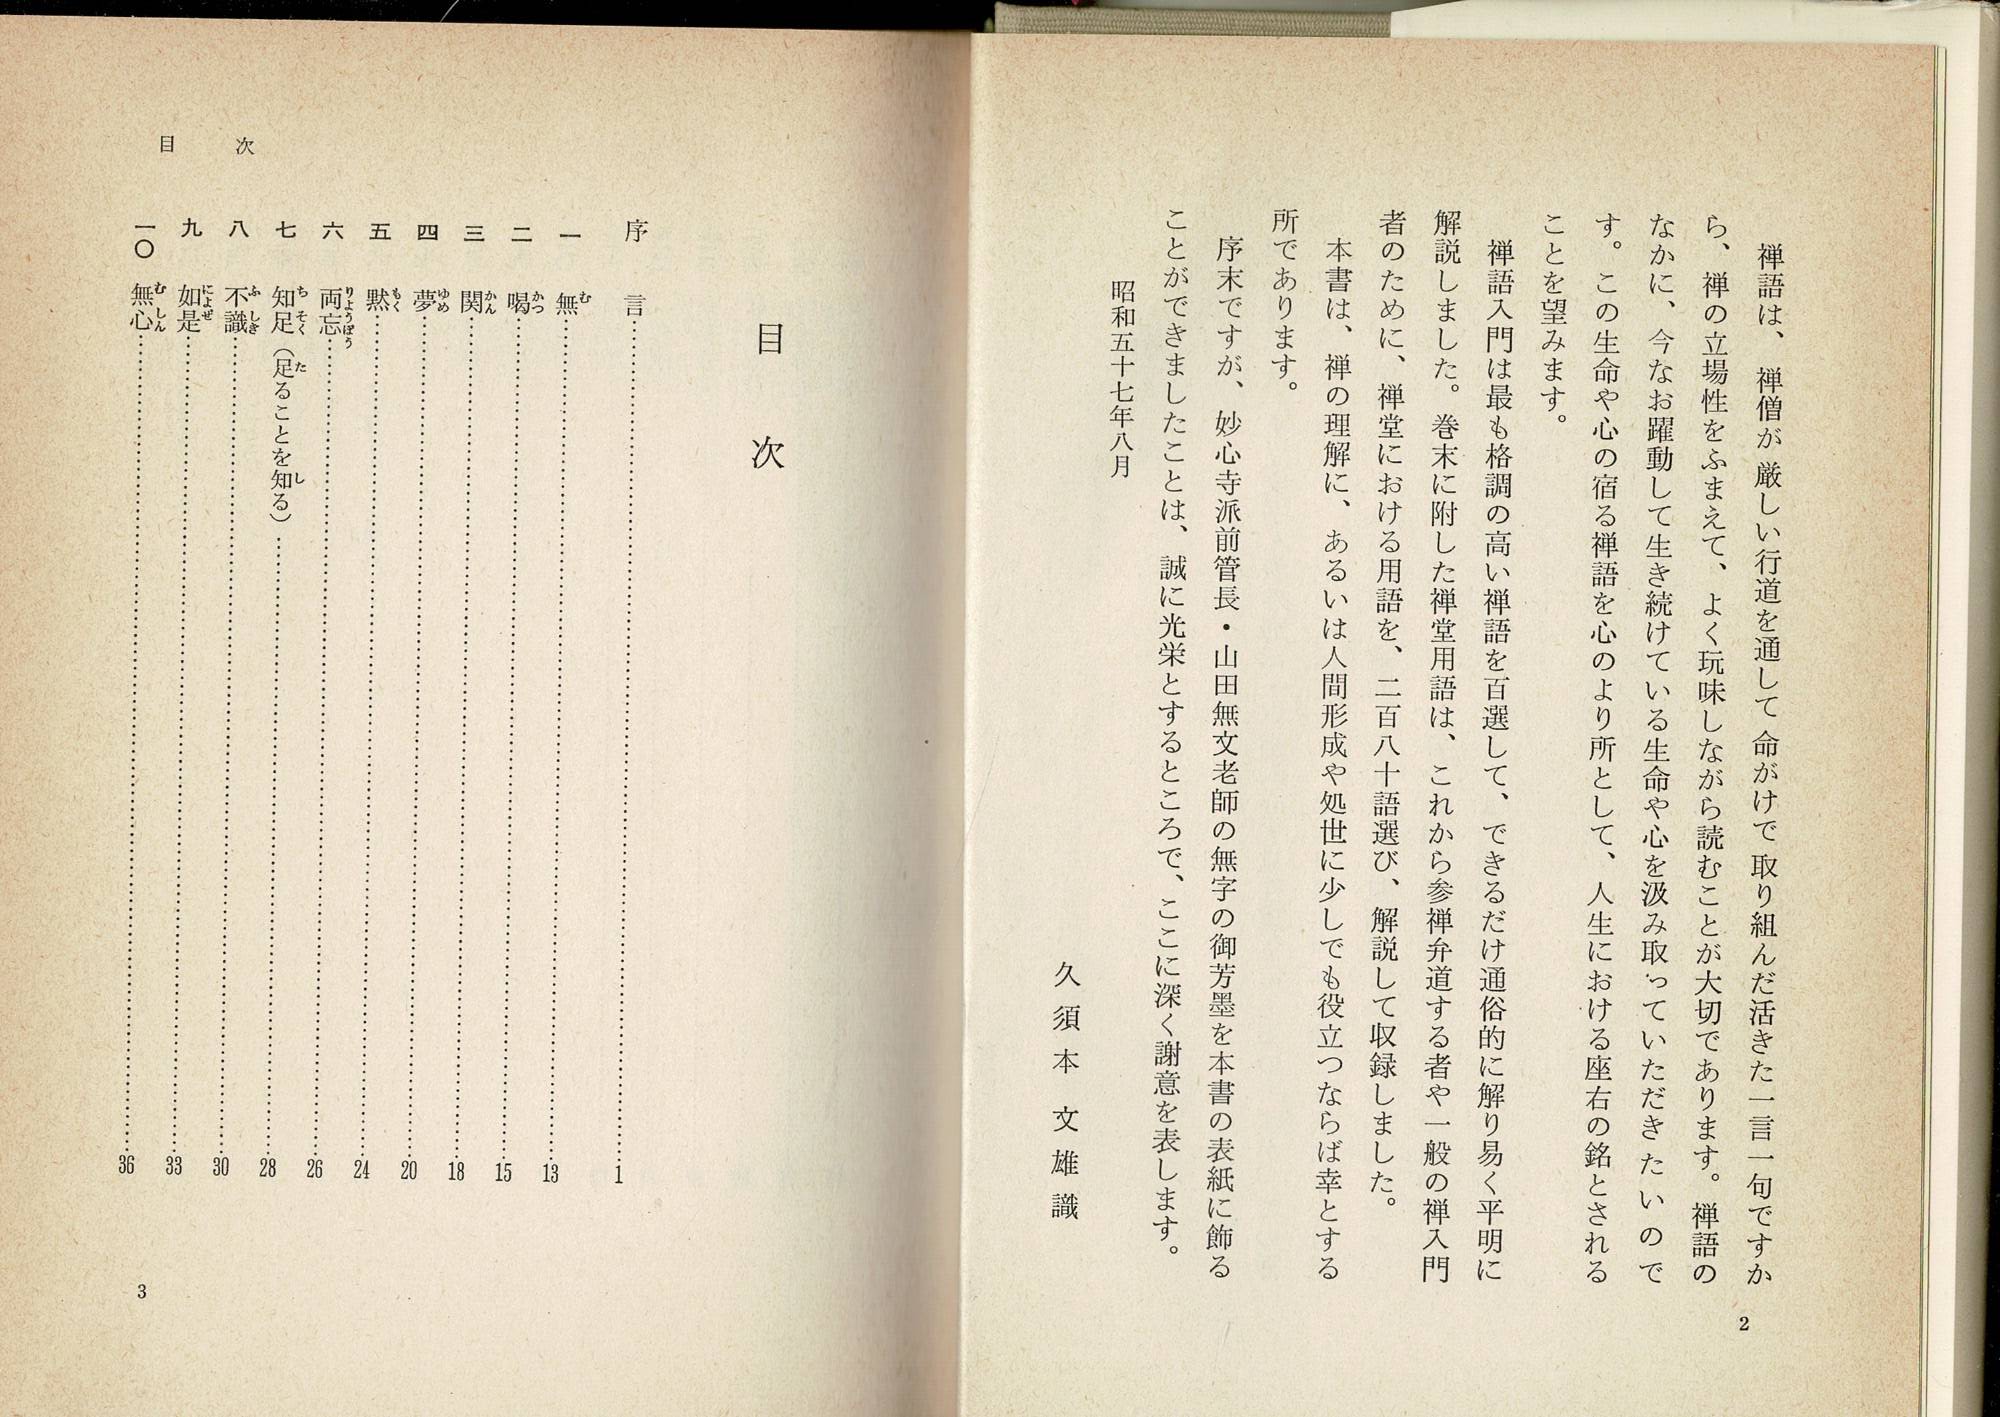 禅語は、禅僧が厳しい行道を通して命がけで取り組んだ活きた一言一句ですか
ら、禅の立場性をふまえて、よく玩味しながら読むことが大切であります。禅語の
なかに、今なお躍動して生き続けている生命や心を汲み取っていただきたいので
す。この生命や心の宿る禅語を心のより所として、人生における座右の銘とされる
ことを望みます。
禅語入門は最も格調の高い禅語を百選して、できるだけ通俗的に解り易く平明に
解説しました。巻末に附した禅堂用語は、これから参禅弁道する者や一般の禅入門
者のために、禅堂における用語を、二百八十語選び、解説して収録しました。
本書は、禅の理解に、あるいは人間形成や処世に少しでも役立つならば幸とする
所であります。
序末ですが、妙心寺派前管長・山田無文老師の無字の御芳墨を本書の表紙に飾る
ことができましたことは、誠に光栄とするところで、ここに深く謝意を表します。
昭和五十七年八月
久須本文雄識
2
目次
序言……1
一 無むむ……13
二 喝かつ……15
三 関かん……18
四 夢ゆめ……20
五 黙もく……24
六 両忘りょうぼう……26
七 知足ちそく（足たることを知しる）……28
八 不識ふしき……30
九 如是にょぜ……33
一〇 無心むしん……36
目次
3